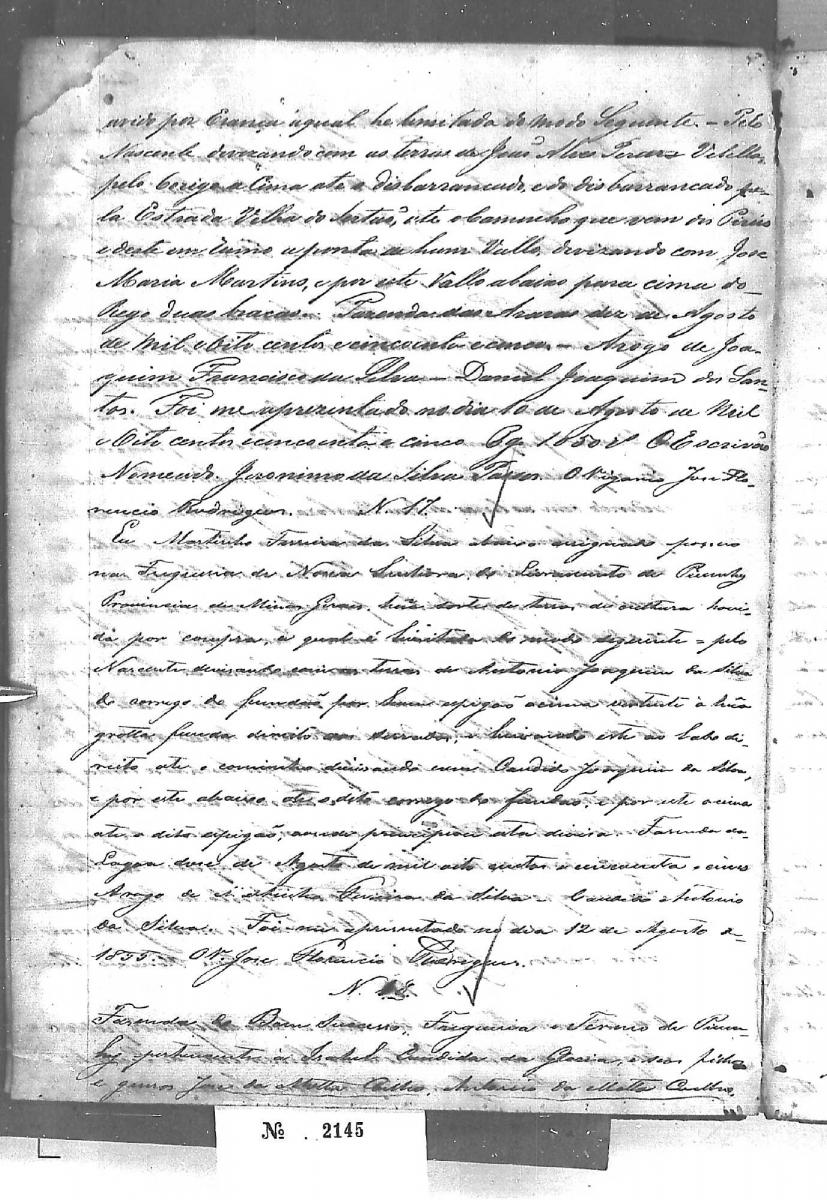 avido por Erança aqual he limitada do modo Seguente. - Pelo
Nascente devizando com as terras de Joaõ Alves
pelo Corigo a Cima ate a disbarrancado, e do disbarrancado pe-
la Estrada Velha do Sertaõ, ate o Caminho que vem dos
e deste em rumo a ponta de hum Vallo, devizando com Jose
Maria Martins, e por este Vallo abaixo para cima do
Rego duas bracas. Fazenda das Araras dez de Agosto
de Mil e Oito centos e cincoenta e cinco. - Arogo de Joa-
quim Francisco da Silva - Daniel Joaquim dos San-
tos. Foi me aprezentado no dia 10 de Agosto de Mil
e Oito centos e cincoenta e cinco Pg. 1050 O Escrivão
Nomeado Jeronimo da Silva O Vigario Jose Flo-
rencio Rodrigues. N. 17.
Eu Martinho Ferreira da Silva abaixo assignado possuo
na Freguezia de Nossa Senhora do Livramento de Piumhy
Provincia de Minas Geraes, huã sorte de terras de cultura havi-
da por compra, a qual é limitada do modo seguente = pelo
Nascente devisando com as terras de Antonio Joaquim da Silva
do corrego do fundaõ por hum espigaõ acima vertente á huã
grotta funda direito ao serrado, e livrando este ao lado di-
reito até o caminho divisando com Candido Joaquim da Silva,
e por este abaixo até o dito corrego do fundaõ, e por este acima
até o dito espigaõ, aonde principiou esta devisa. Fazenda da
Lagoa dose de Agosto de mil oito centos e cincoenta e cinco
Arogo de Martinho Ferreira da Silva - Candido Antonio
da Silva. Foi me apresentado no dia 12 de Agosto de
1855. O Vº Jose Florencio Rodrigues.
N. 18.
Fazenda do Bom Sucesso, Freguezia e Termo de Pium-
hy pertencente a Isabel Candida da Gloria, e seos filhos
e genros Jose da Motta Coelho, Antonio da Motta Coelho,
Nº 2145